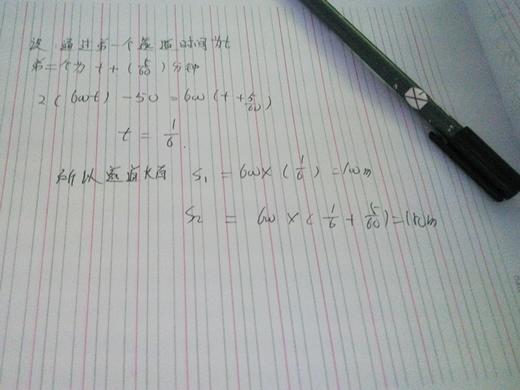 设 通过第一个隧道时间为t
第二个为 t + (5/60) 分钟
2(600t) - 50 = 600(t + 5/60)
t = 1/6.
所以隧道长为 S₁ = 600×(1/6) = 100m
S₂ = 600×(1/6 + 5/60) = 150m